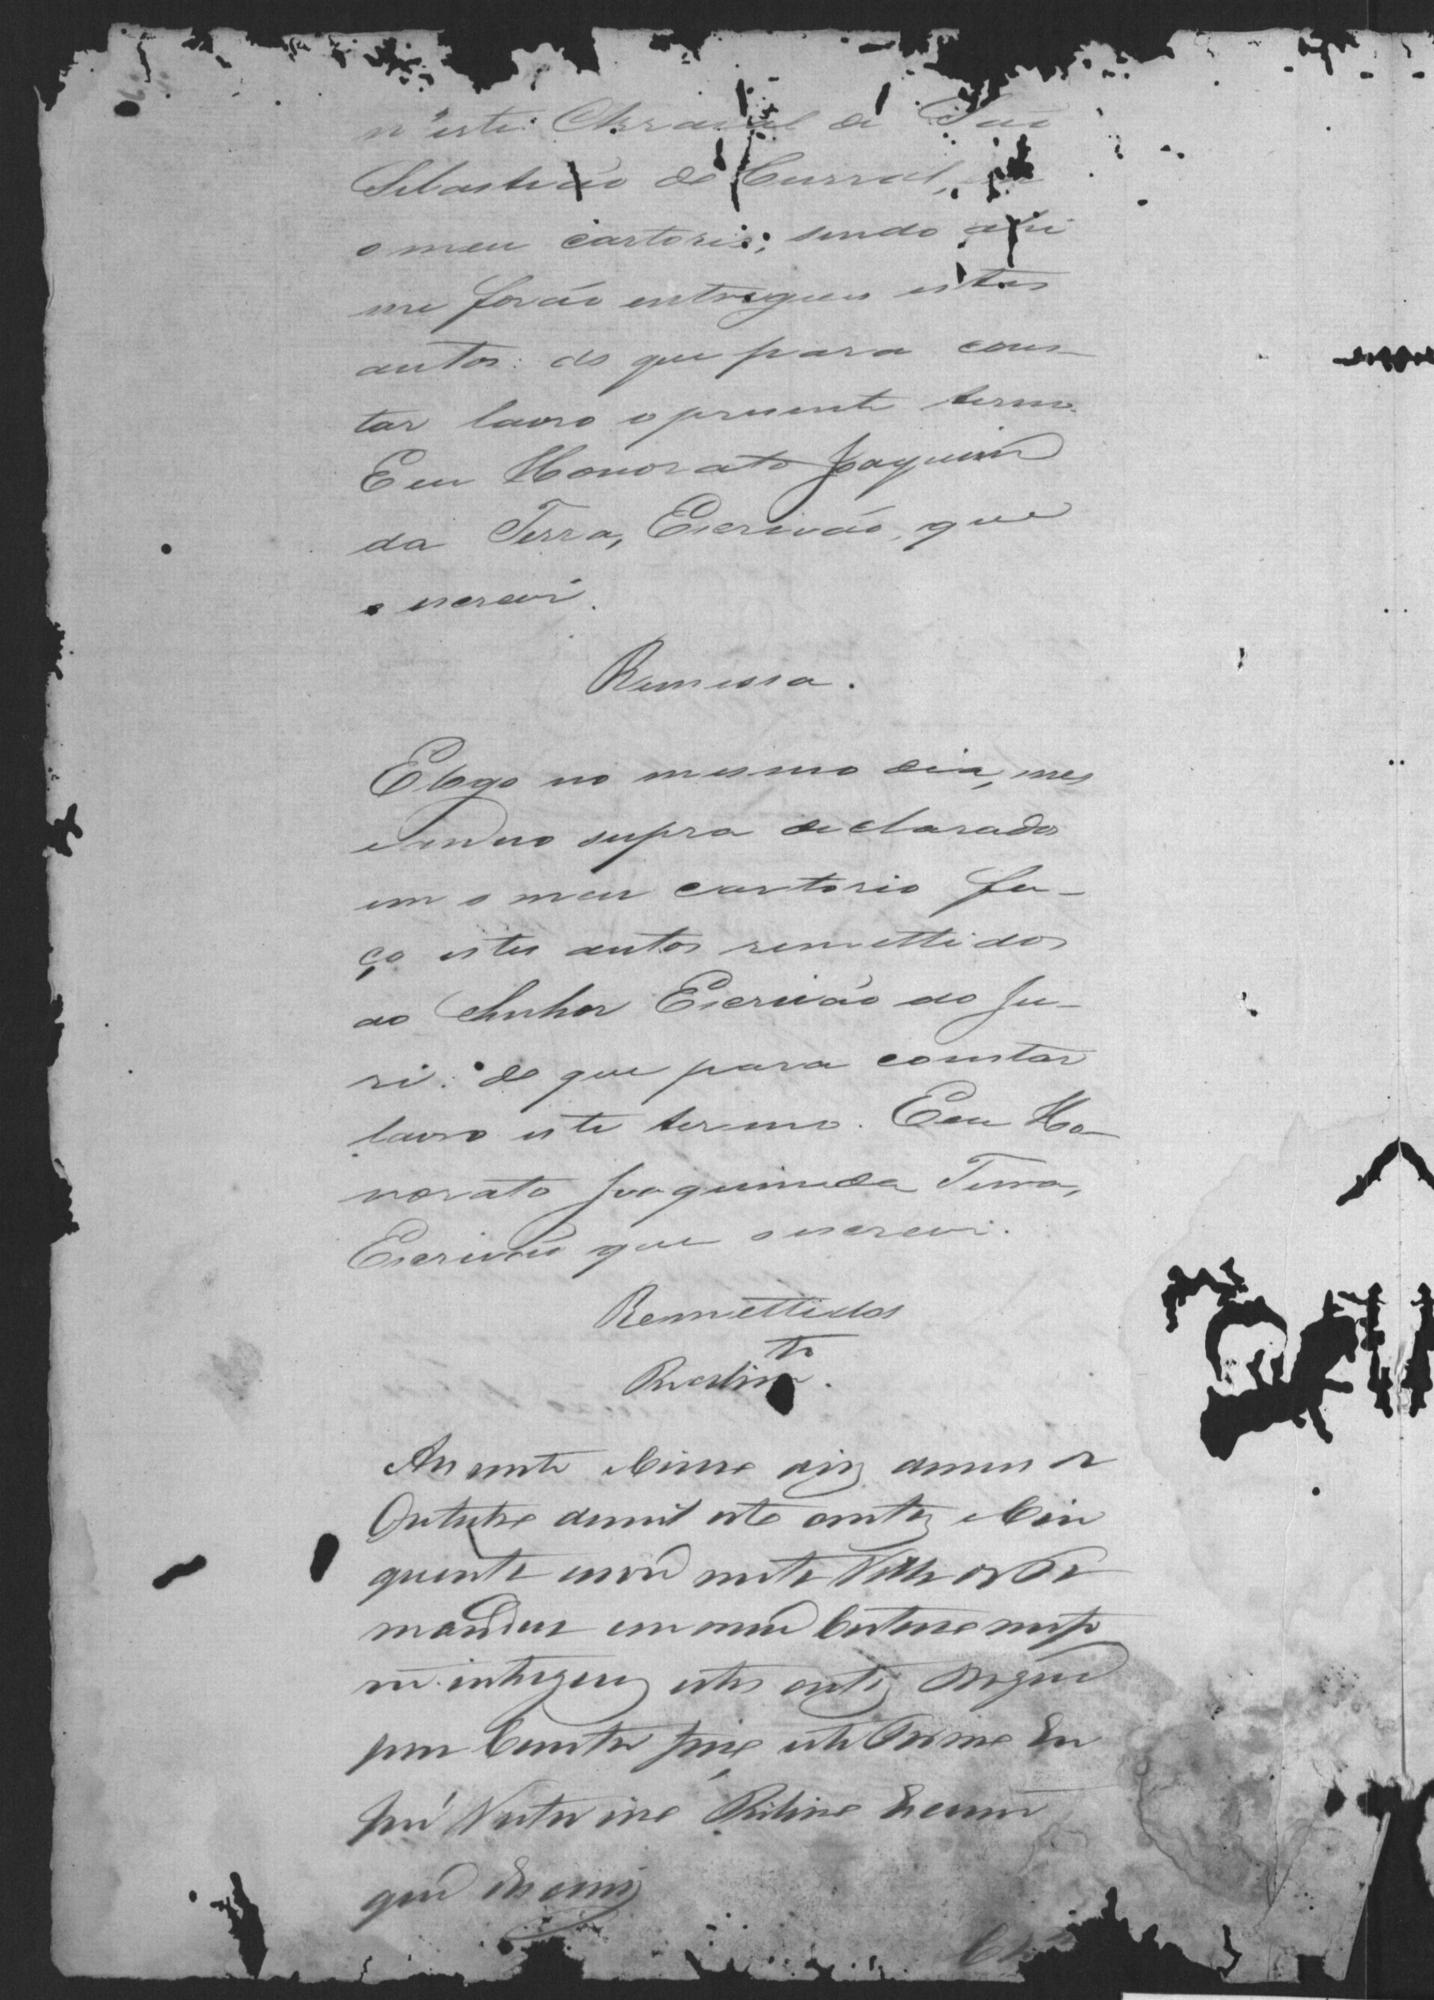 n'este Arraial de São
Sebastião do Curral, em
o meu cartorio; sendo ahi
me forão entregues estes
autos: do que para cons-
tar lavro o presente termo.
E eu Honorato Joaquim
da Terra, Escrivão, que
o escrevi.
Remessa.
E logo no mesmo dia, mes
e anno supra declarados
em o meu cartorio fa-
ço estes autos remettidos
ao Senhor Escrivão do Ju-
ri: do que para constar
lavro este termo. E eu Ho-
norato Joaquim da Terra,
Escrivão que o escrevi.
Remettidos
Recebim.to
Aos vinte e cinco dias do mes de
Outubro de mil oito centos e cin
quenta e nove nesta Villa de
em meu Cartorio me
entregues estes autos do que
para Constar fiz este Termo Eu
José Escrivão
que Escrevi